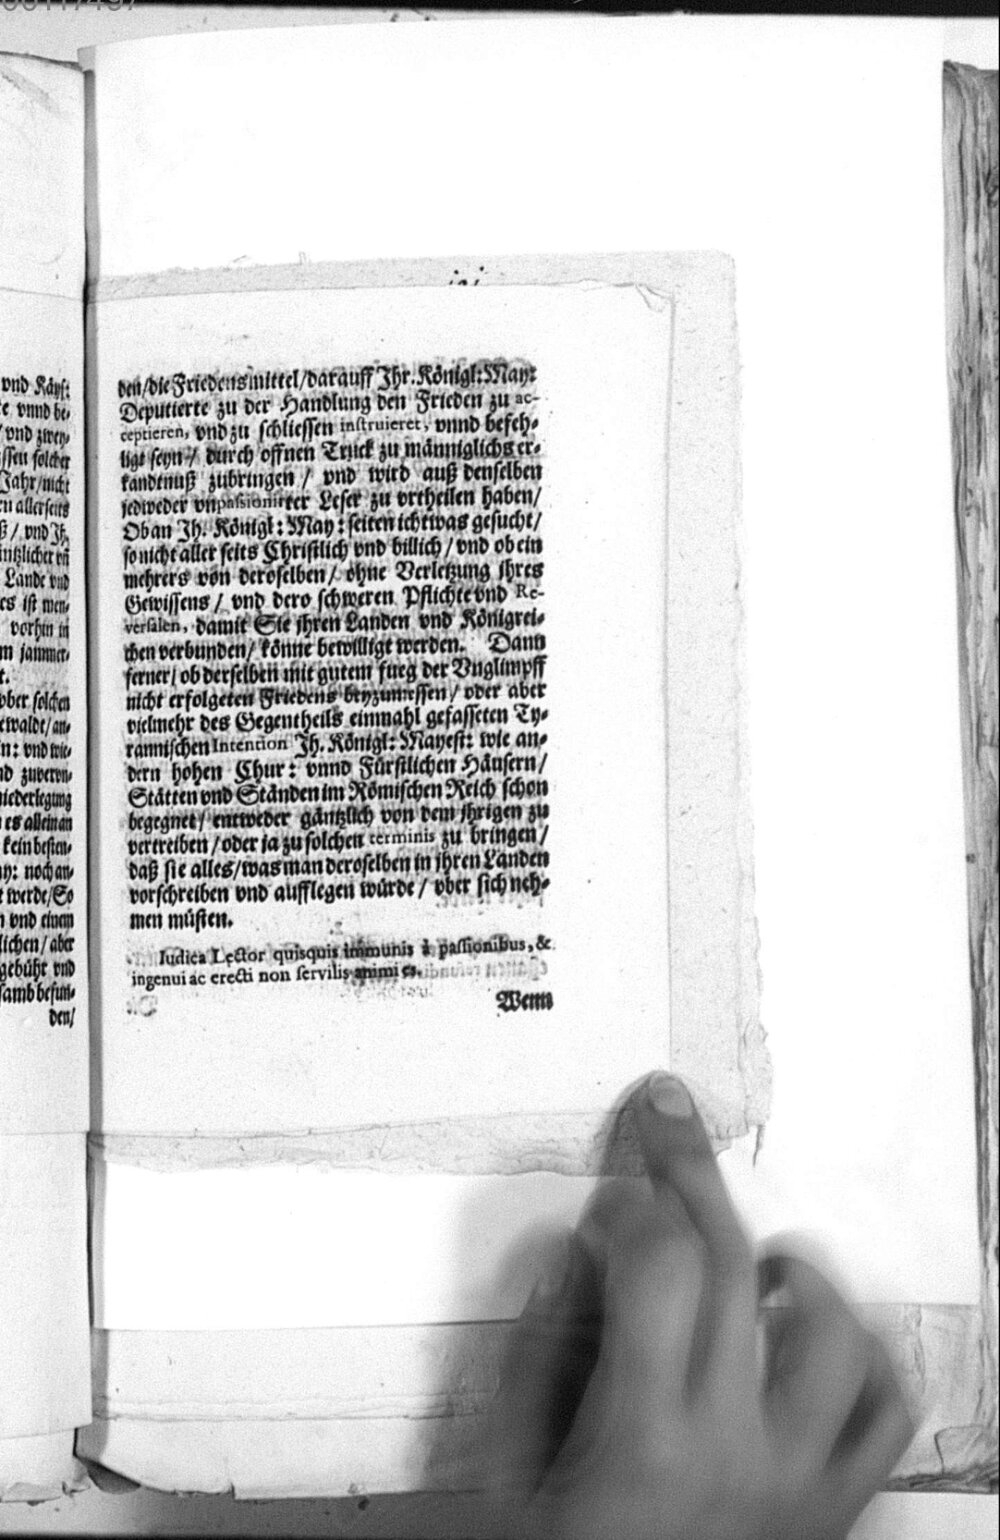 vnd Käys:
vnnd be-
/ vnd zwey-
ssen solcher
Jahr / nicht
allerseits
/ vnd Jh.
äntzlicher vñ
Lande vnd
es ist men-
vorhin in
m jammer-
t.
vber solchen
ewalde / an-
n: vnd wie-
nd zuvern-
niederlegung
es allein an
kein besten-
ay: noch an-
t werde / So
n vnd einem
lichen / aber
gebühr vnd
samb befun-
den /
den / die Friedensmittel / darauff Jhr. Königl: May:
Deputierte zu der Handlung den Frieden zu ac-
ceptieren, vnd zu schliessen instruieret, vnnd befeh-
ligt seyn / durch offnen Truck zu männiglichs er-
kandtnuß zubringen / vnd wird auß denselben
jedweder vnpassionirter Leser zu vrtheilen haben /
Ob an Jh. Königl: May: seiten ichtwas gesucht /
so nicht aller seits Christlich vnd billich / vnd ob ein
mehrers von deroselben / ohne Verletzung jhres
Gewissens / vnd dero schweren Pflichte vnd Re-
versalen, damit Sie jhren Landen vnd Königrei-
chen verbunden / könne bewilligt werden. Dann
ferner / ob derselben mit gutem fueg der Vnglimpff
nicht erfolgeten Friedens beyzumessen / oder aber
vielmehr des Gegentheils einmahl gefasseten Ty-
rannischen Intention Jh. Königl: Mayest: wie an-
dern hohen Chur: vnnd Fürstlichen Häusern /
Stätten vnd Ständen im Römischen Reich schon
begegnet / entweder gäntzlich von dem jhrigen zu
vertreiben / oder ja zu solchen terminis zu bringen /
daß sie alles / was man deroselben in jhren Landen
vorschreiben vnd aufflegen würde / vber sich neh-
men müsten.
Iudica Lector quisquis immunis à passionibus, &
ingenui ac erecti non servilis animi es.
Wenn